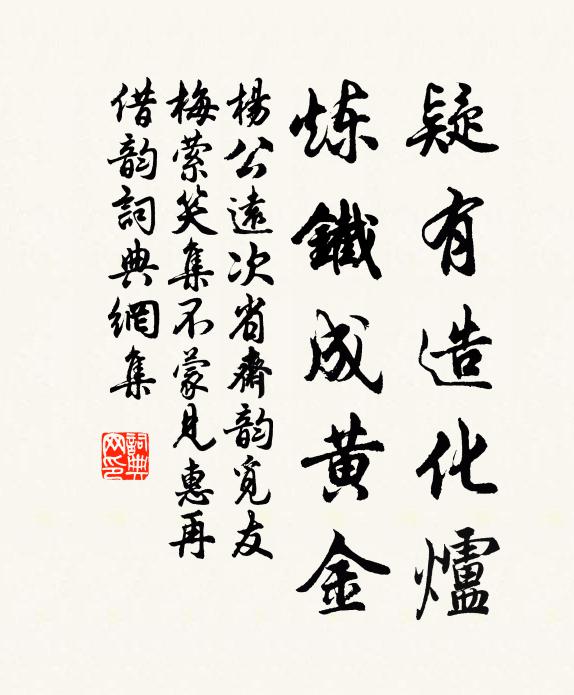 疑有造化爐
炼鐵成黄金
楊公遠次省齋韵覓友
梅索笑集不蒙見惠再
借韵詞典網集
詞典网印